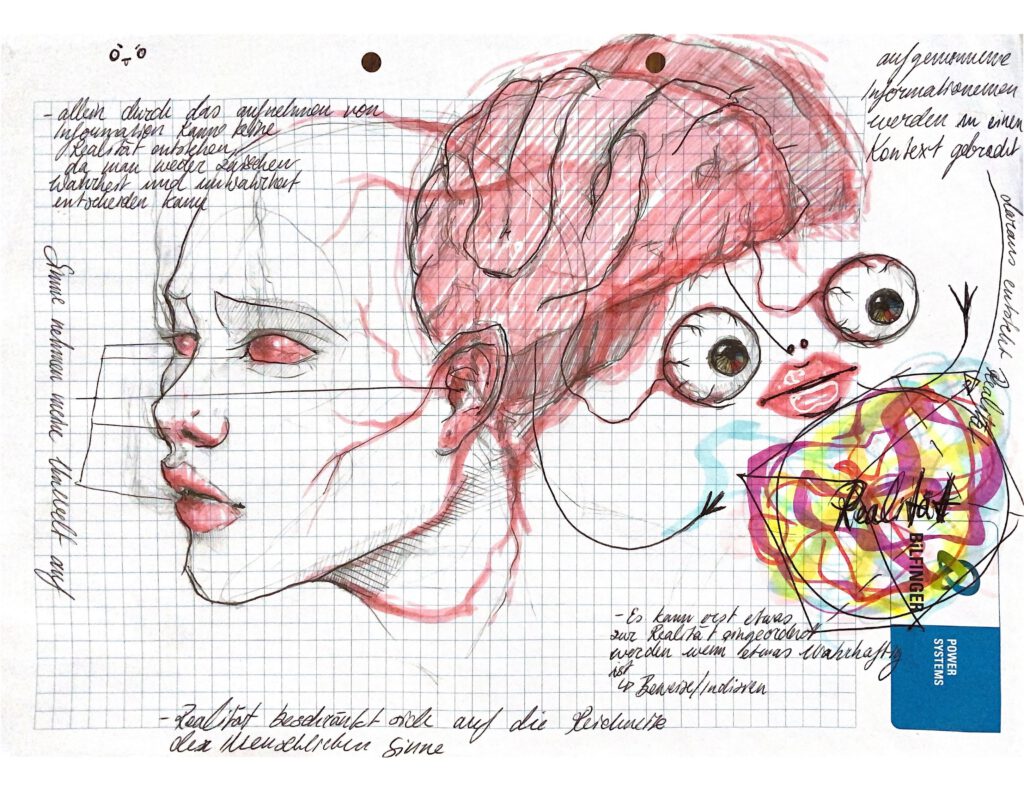 - allein durch das aufnehmen von
Information kanne keine
Realität entstehen,
da man weder zwischen
wahrheit und unwahrheit
entscheiden kann
aufgenommene
Informationenen
werden in einen
Kontext gebracht
daraus entsteht Realität
Sinne nehmen Umwelt auf
Realität
BILFINGER
POWER
SYSTEMS
- Es kann erst etwas
zur Realität eingeordnet
werden wenn etwas Wahrhaftig
ist
↳ Beweise/Indizien
- Realität beschränkt sich auf die Reichweite
der Menschlichen Sinne